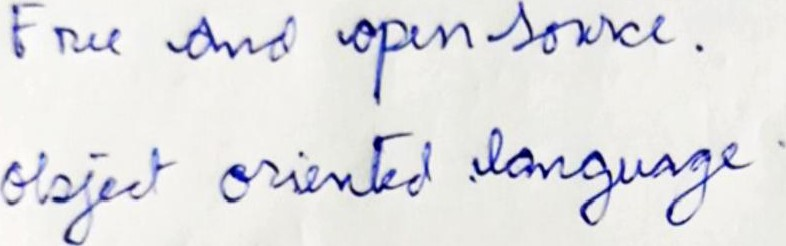 Free and open source.
object oriented language.